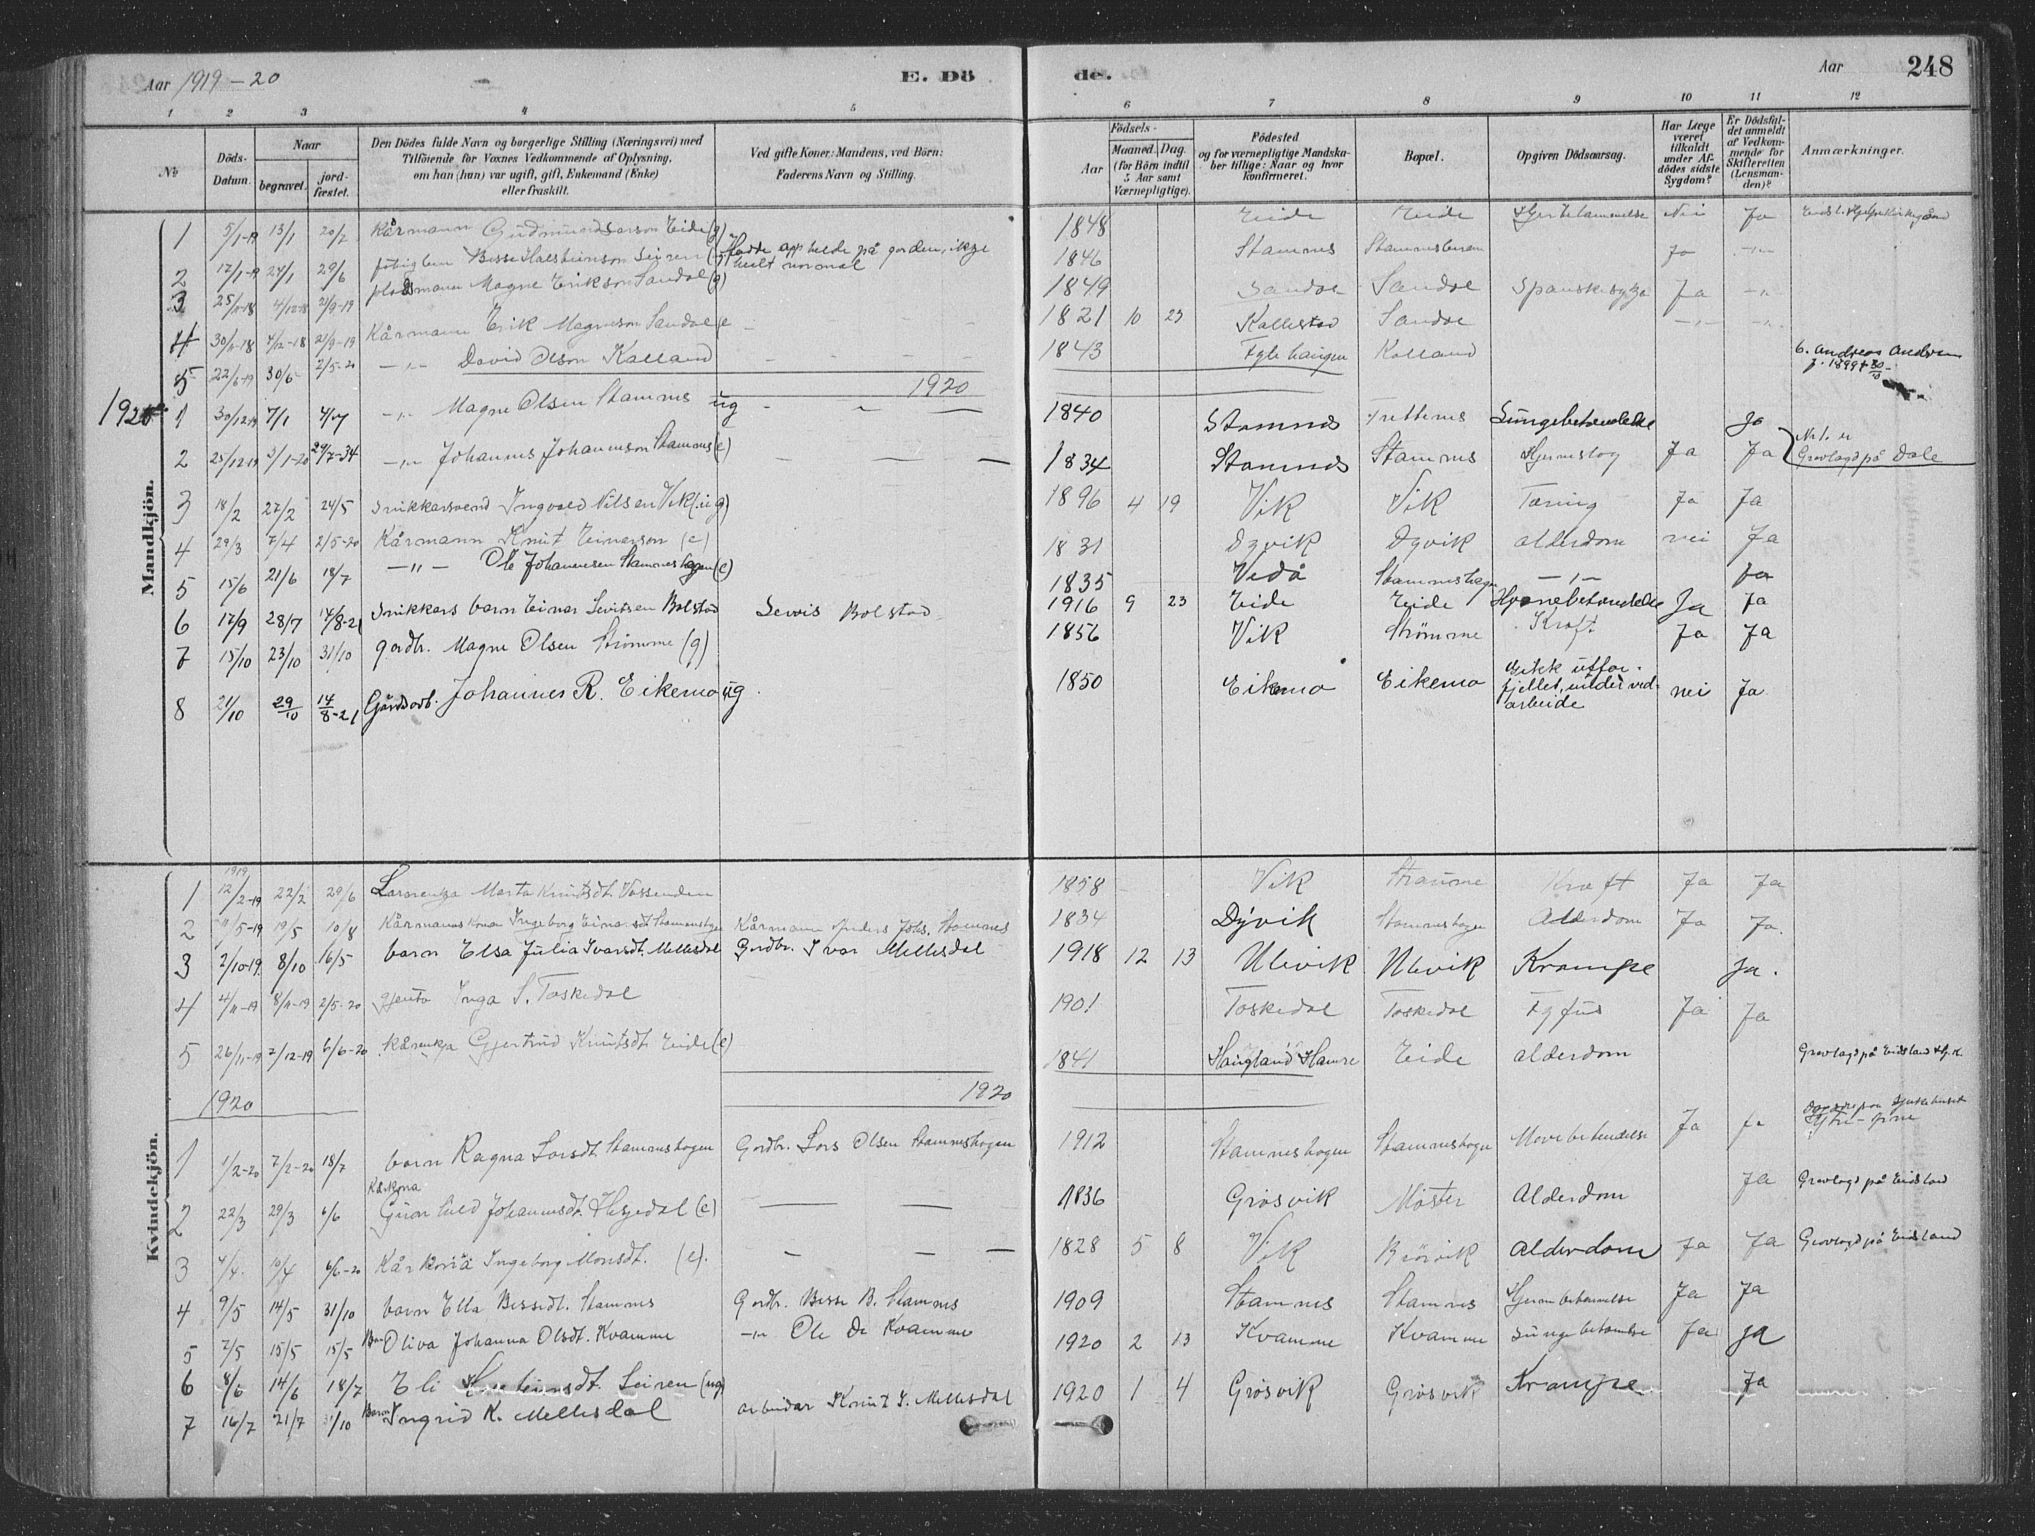 Aar 1919-20 E. Dö de. Aar 248
1 2 3 4 5 6 7 8 9 10 11 12
№ Döds-Datum. Naar begravet. jord-fæstet. Den Dödes fulde Navn og borgerlige Stilling (Næringsvei) med Tilföiende for Voxnes Vedkommende af Oplysning, om han (hun) var ugift, gift, Enkemand (Enke) eller fraskilt. Ved gifte Koner: Mandens, ved Börn: Faderens Navn og Stilling. Födsels- Aar Maaned. Dag. (for Börn indtil 5 Aar samt Værnepligtige). Födested og for værnepligtige Mandskaber tillige: Naar og hvor konfirmeret. Bopæl. Opgiven Dödsaarsag. Har Læge været tilkaldt under Afdödes sidste Sygdom? Er Dödsfaldet anmeldt af Vedkommende for Skifteretten (Lensmanden)? Anmærkninger.
Mandkjön.
1 5/1-19 13/1 20/7 Kårmann Eide (g) 1848 Eide Eide Nei Ja
2 17/1-19 24/1 29/6 Hadde opphelde på garden, ikje heilt normal 1846 Stamnes Ja -"-
3 25/11-18 4/12-18 21/9-19 plassmann Magne Erikson Sandal (g) 1849 Sandal Sandal Spanskesykja Ja -"-
4 30/11-18 7/12-18 21/9-19 Kårmann Erik Magneson Sandal e 1821 10 23 Kallestad Sandal -"- -"-
5 22/6-19 30/6 2/5-20 -"- David Olson Kalland 1843 Kalland
1920
1 30/12-19 7/1 4/7 -"- Magne Olsen Stamnes ug 1840 Stamnes Lungebetendelse Ja
2 25/12-19 3/1-20 29/7-34 -"- Johannes Johannesson Stamnes (e) 1834 Stamnes Stamnes Hjerneslag Ja Ja Nr 1. er Gravlagd på Dale
3 18/2 27/2 24/5 Snikkarsvend Ingvald Nilsen Vik (ug) 1896 4 19 Vik Vik Tæring Ja Ja
4 29/3 7/4 2/5-20 Kårmann Knut Einarson (e) 1831 Dyvik Dyvik alderdom nei Ja
5 15/6 21/6 18/7 -"- Ole Johannesen Stamneshagen (e) 1835 Vedå Stamneshagen -"- Ja
6 17/9 28/7 14/8-21 Snikkers barn Einar Bolstad Bolstad 1916 9 23 Eide Eide Ja Ja
7 15/10 23/10 31/10 gardbr. Magne Olsen Strömme (g) 1856 Vik Strömme Kræft Ja Ja
8 21/10 29/10 14/8-21 Gårdsarb. Johannes R. Eikemo ug. 1850 Eikemo Eikemo Gikk utfor fjellet, under vedarbeide nei Ja
Kvindekjön.
1919
1 12/2-19 22/2 29/6 Marta Knutsdt. Vassenden 1858 Vik Straume Kræft Ja Ja
2 11/5-19 19/5 10/8 Kårmanns Kona Ingeborg Einarsdt Stamneshagen Kårmann Anders Johs. Stamnes 1834 Dyvik Stamneshagen Alderdom Ja Ja
3 2/10-19 8/10 16/5 barn Elsa Julia Ivarsdt. Mellesdal Gardbr. Ivar Mellesdal 1918 12 13 Ulevik Ulevik Krampe Ja.
4 4/11-19 8/11-19 2/5-20 gjenta Inga S. Toskedal 1901 Toskedal Toskedal Tyfus Ja Ja
5 26/11-19 7/12-19 6/6-20 Gjertrud Knutsdt. Eide (e) 1841 Haugland Hamre Eide alderdom Gravlagd på Eidsland
1920 1920
1 1/2-20 7/2-20 18/7 barn Ragna Larsdt. Stamneshagen Gardbr. Lars Olsen Stamneshagen 1912 Stamneshagen Stamneshagen Ja Ja
2 22/3 29/3 6/6 Kårkona Gunhild Johannesdt. (e) 1836 Gråsvik Alderdom Ja Gravlagd på Eidsland
3 4/4. 10/4 6/6-20 Kårkona Ingeborg Monsdt. (e). 1828 5 8 Vik Alderdom Ja Ja Gravlagd på Eidsland
4 9/5 14/5 31/10 barn Ella Bessedt. Stamnes Gardbr. Besse B. Stamnes 1909 Stamnes Stamnes Ja Ja
5 7/5 15/5 15/5 Barn Oliva Johanna Olsdt. Kvamme -"- Ole Kvamme 1920 2 13 Kvamme Kvamme Ja Ja
6 8/6 14/6 18/7 Eli Seiren (ug)
7 16/7 21/7 31/10 Barn Ingrid K. Mellesdal arbeidar Knut I. Mellesdal 1920 1 4 Gråsvik Gråsvik Krampe Ja